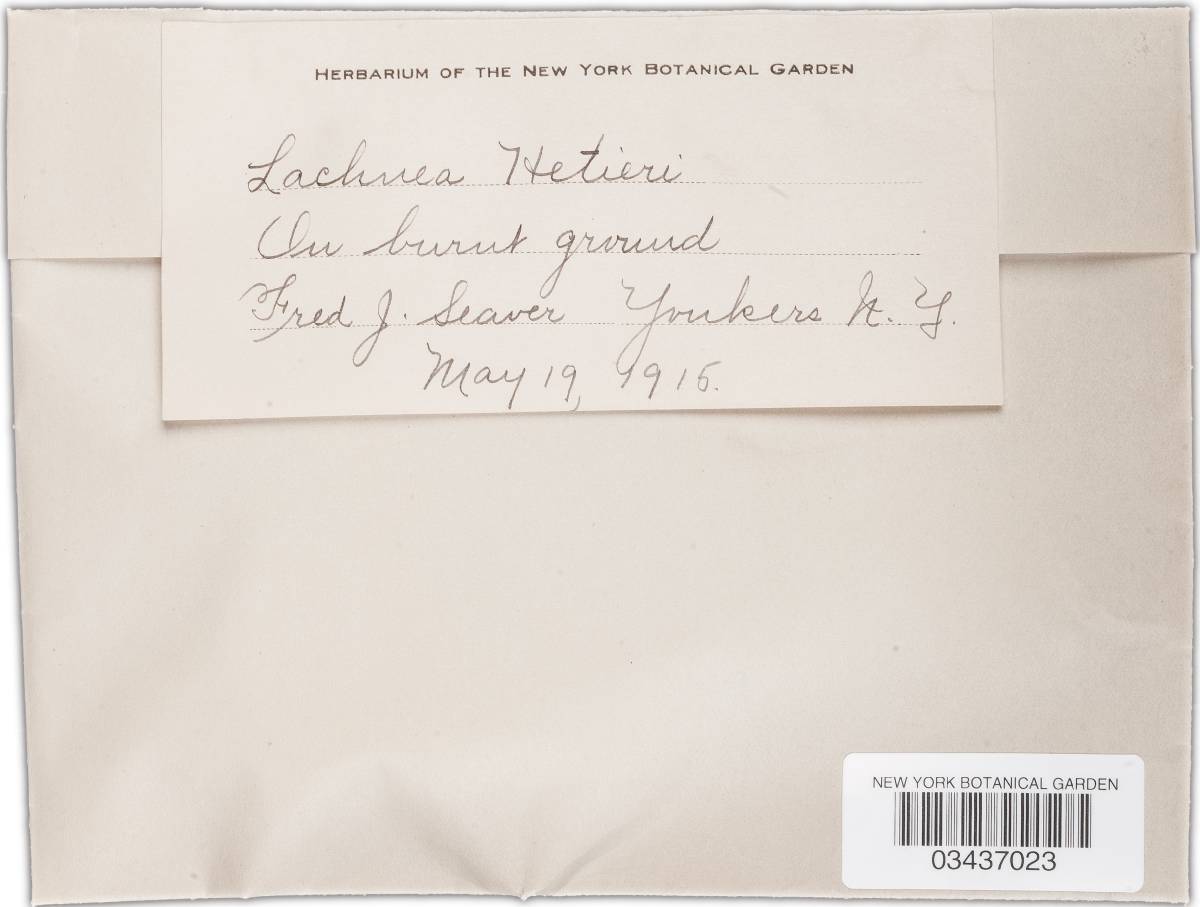 HERBARIUM OF THE NEW YORK BOTANICAL GARDEN
Lachnea Hetieri
On burnt ground
Fred J. Seaver Yonkers N. Y.
May 19, 1915.
NEW YORK BOTANICAL GARDEN
03437023